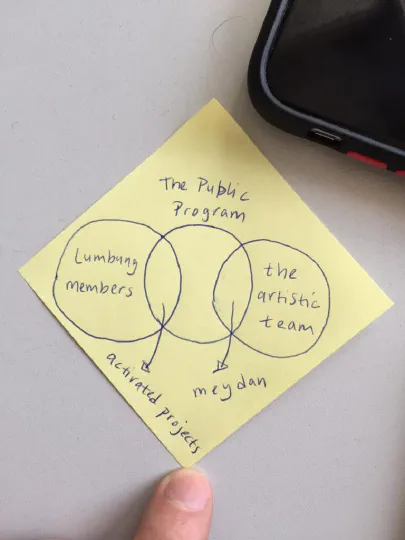 The Public
Program
Lumbung
members
the
artistic
team
activated projects
meydan